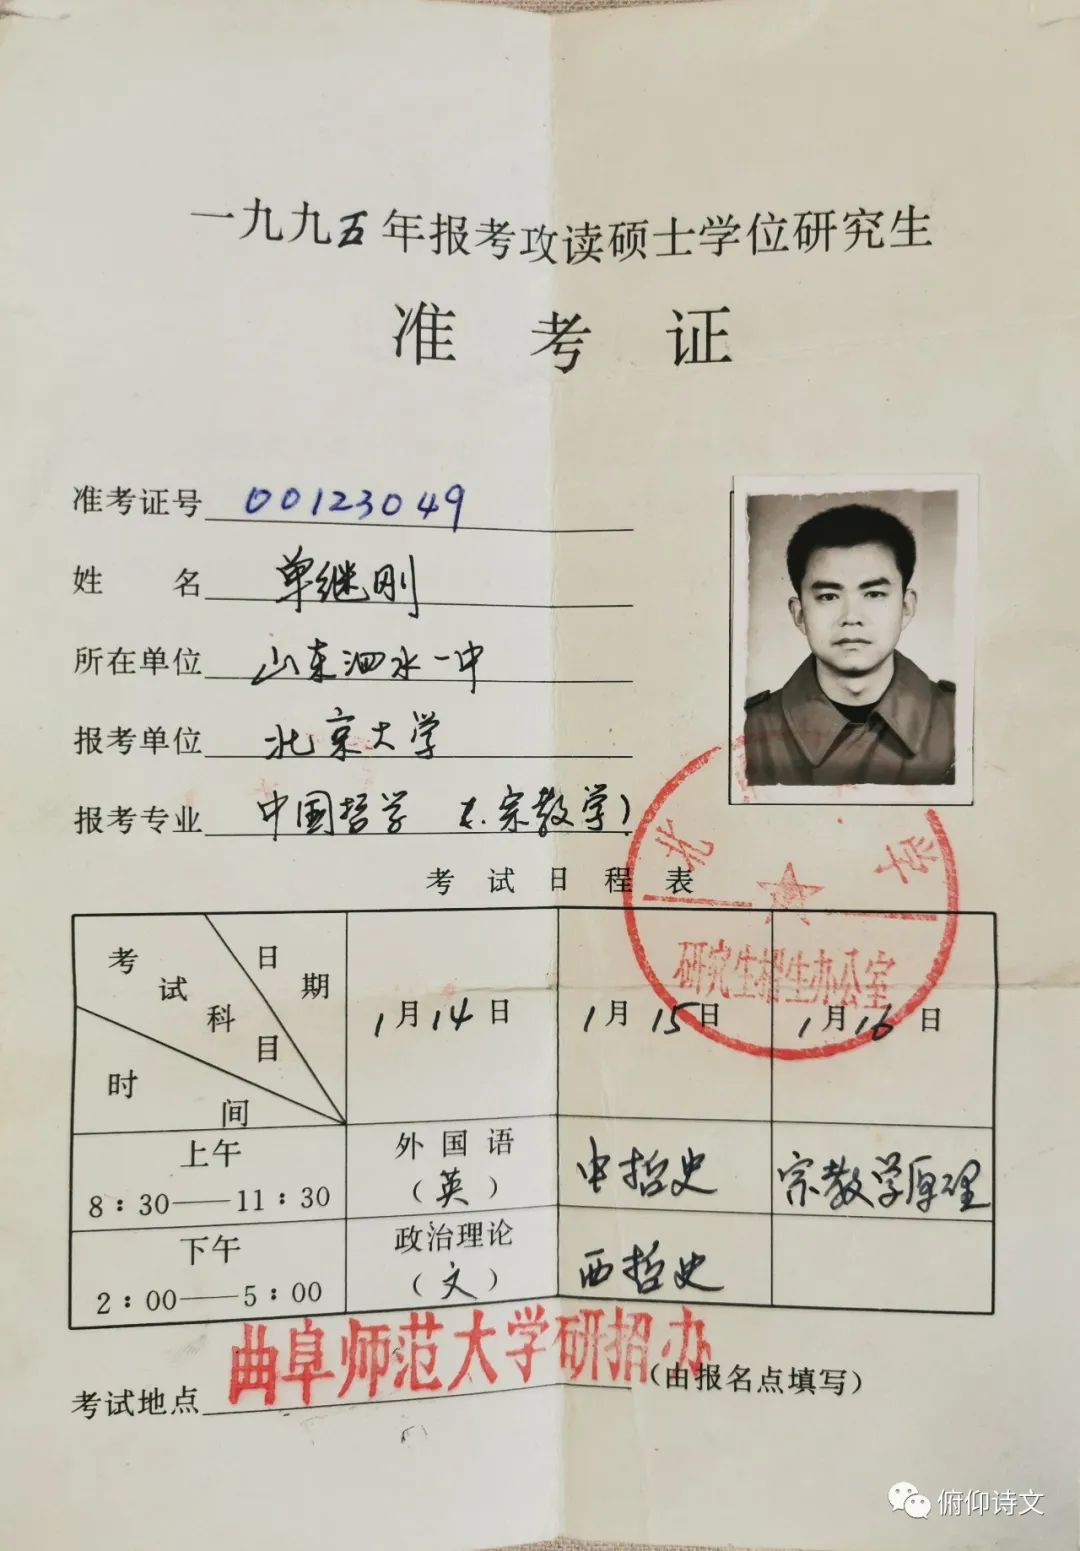 一九九五年报考攻读硕士学位研究生
准考证
准考证号 00123049
姓名 单继刚
所在单位 山东泗水一中
报考单位 北京大学
报考专业 中国哲学 (宗教学)
考试日程表
考试科目 日期 时间
1月14日 1月15日 1月16日
上午 8:30——11:30 外国语(英) 中哲史 宗教学原理
下午 2:00——5:00 政治理论(文) 西哲史
北 学
研究生招生办公室
考试地点 曲阜师范大学研招办 (由报名点填写)
俯仰诗文